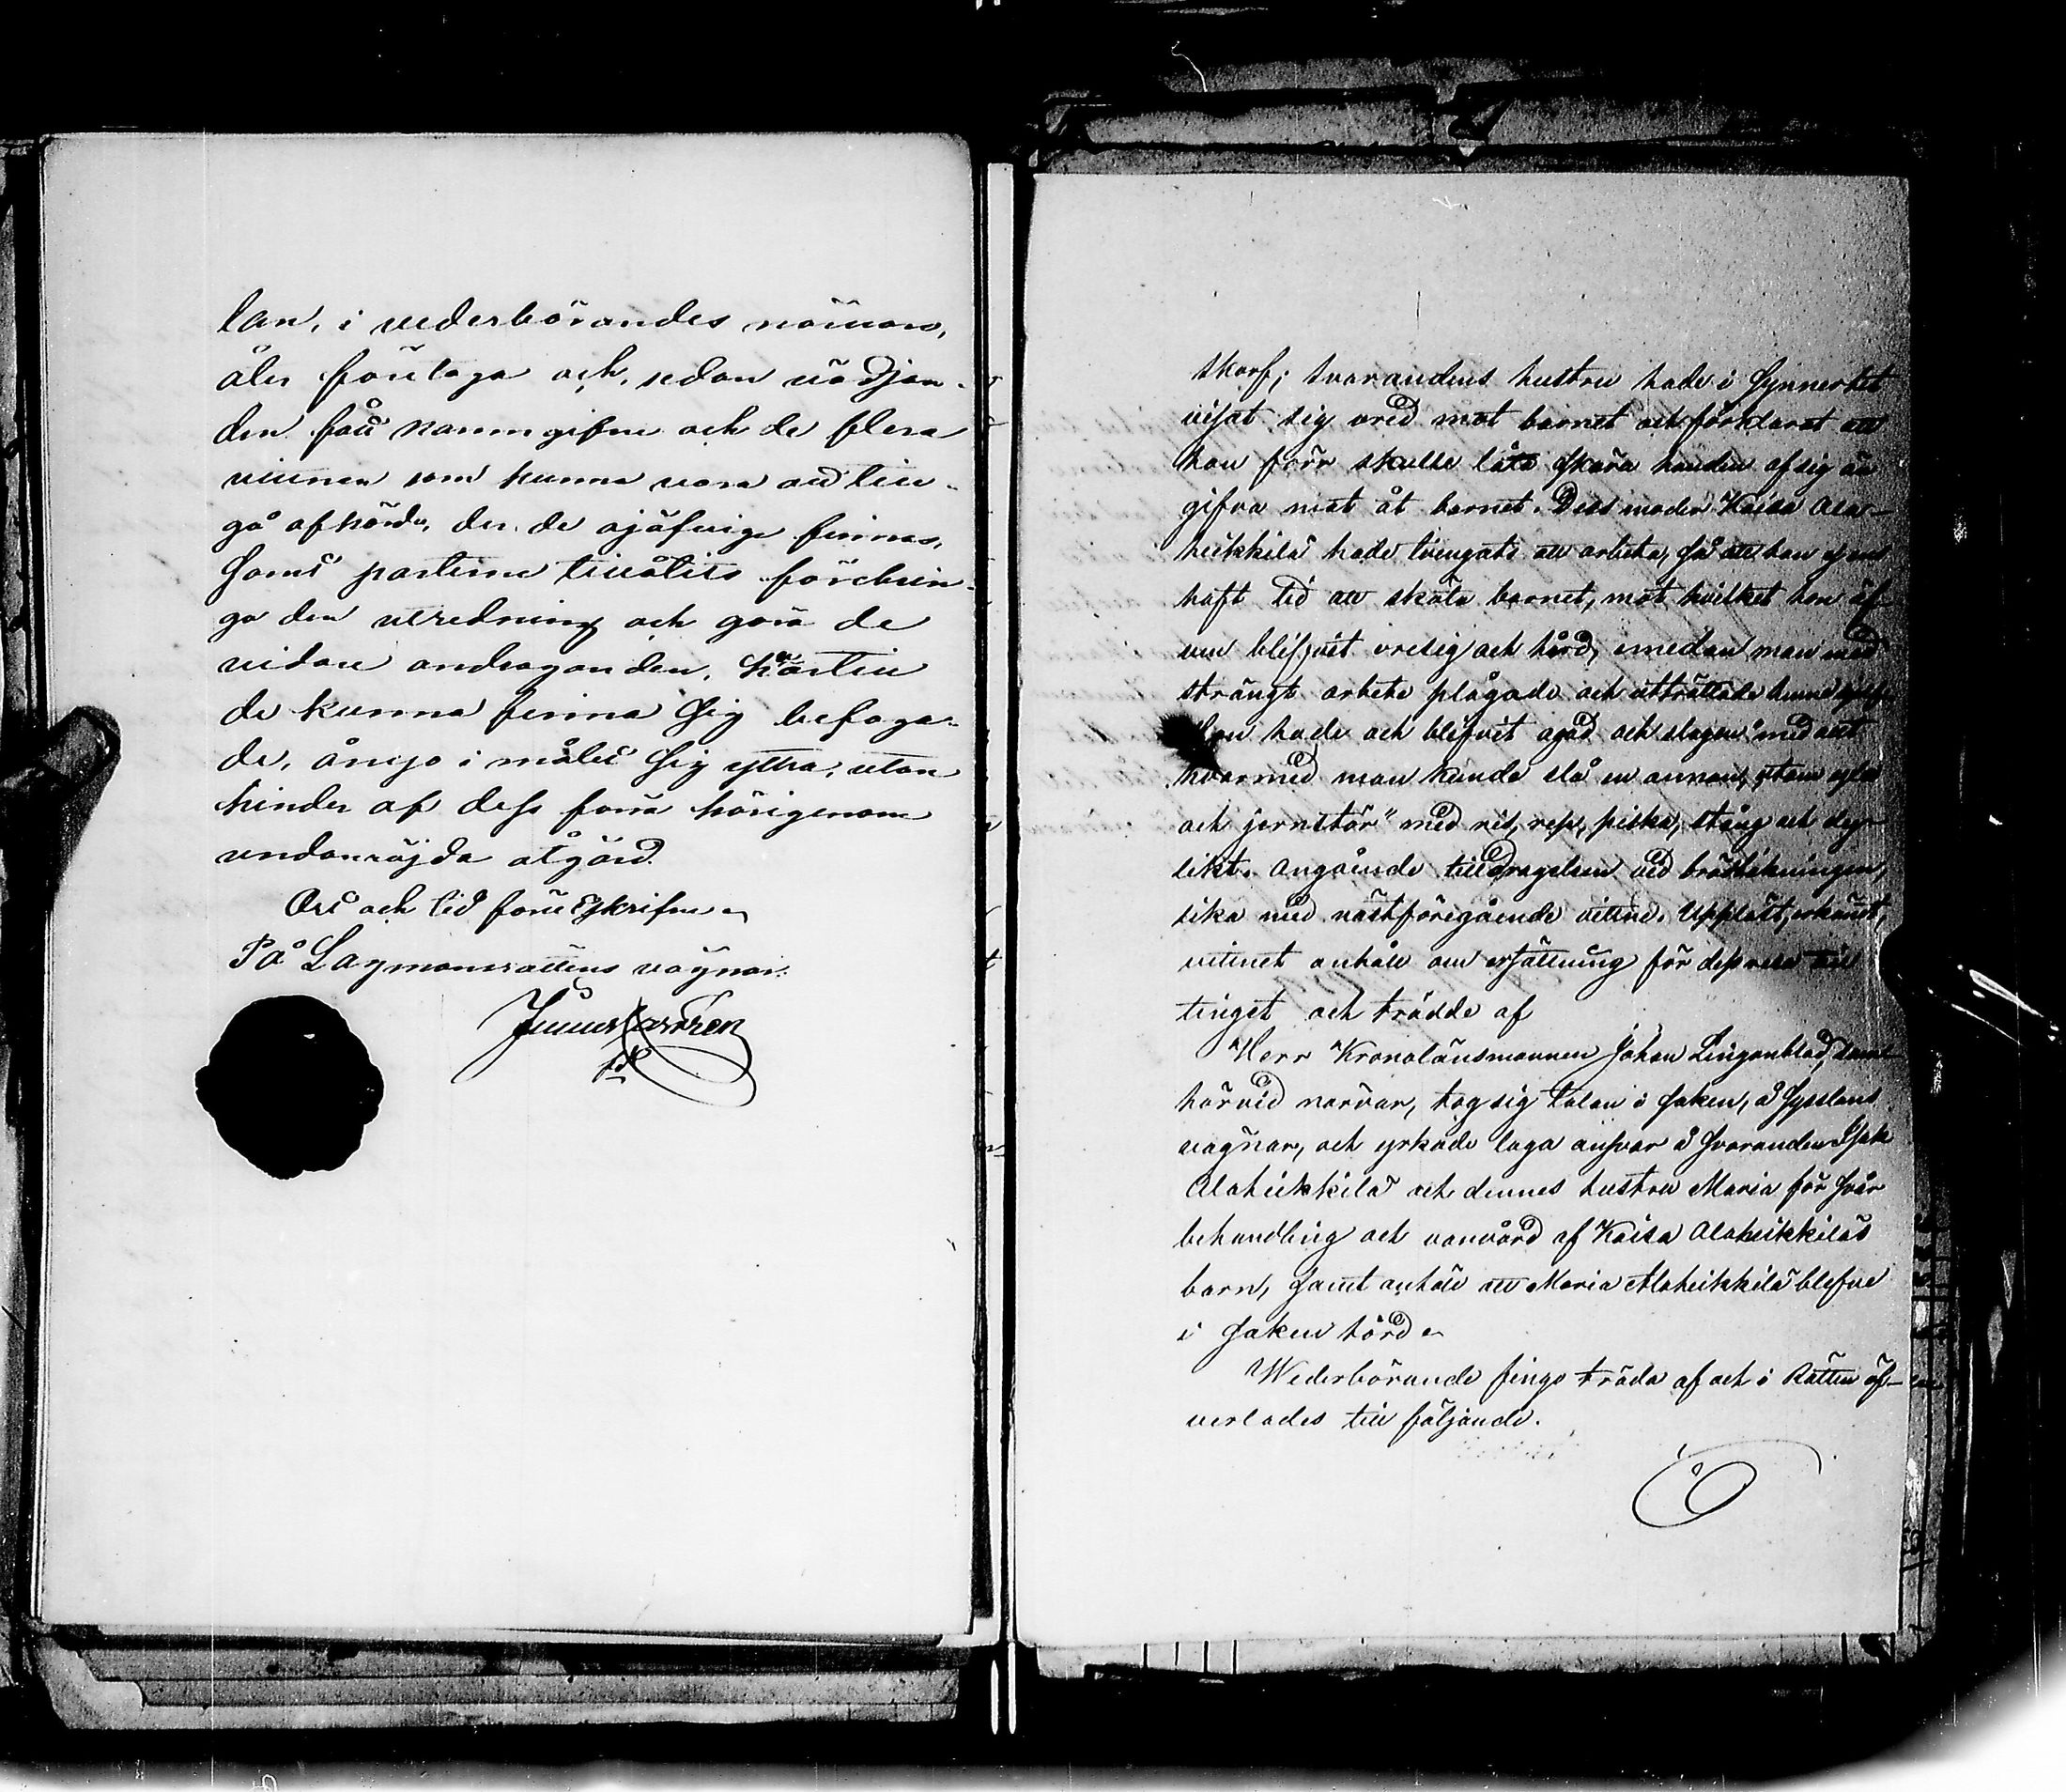 lan, i vederbörandes närvaro,
åter företaga och, sedan vädjan-
den fått namngifne och de flera
vittnen som kunna vara att till-
gå afhörda, der de ojäfvige finnas,
samt parterne tillåtits förebrin-
ga den utredning och göra de
vidare andraganden, hvartill
de kunna finna sig befoga-
de, ånyo i målet sig yttra, utan
hinder af dess förra härigenom
undanröjda åtgärd.
Ort och tid föreskrifne
På Lagmansrättens vägnar.
skorf; svarandens hustru hade i synnerhet
visat sig vred mot barnet och förklarat att
hon förr skulle låta skära handen af sig än
gifva mat åt barnet. Dess moder Kaisa Ala-
heikkilä hade tvungits att arbeta, så att hon ej ens
haft tid att sköta barnet, mot hvilket hon äf-
ven blifvit vresig och hård, emedan man med
strängt arbete plågade och uttröttade henne sjelf
Hon hade och blifvit agad och slagen "med allt
hvarmed man kunde slå en annan, utom yxa
och jernstör" med ris, rep, piska, stång och dy-
likt. Angående tilldragelsen vid brödstekningen,
lika med nästföregående vittne. Uppläst, erkändt,
vittnet anhöll om ersättning för dess resa till
tinget och trädde af
Herr Kronolänsmannen Johan Lingonblad, som
härvid närvar, tog sig talan i saken, å Sysslans
vägnar, och yrkade laga ansvar å svaranden Isak
Alaheikkilä och dennes hustru Maria för svår
behandling och vanvård af Kaisa Alaheikkiläs
barn, samt anhöll att Maria Alaheikkilä blefve
i saken hörd
Wederbörande fingo träda af och i Rätten öf-
verlades till följande.